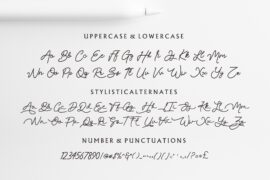 UPPERCASE & LOWERCASE
Aa Bb Cc Dd Ee Ff Gg Hh Ii Jj Kk Ll Mm
Nn Oo Pp Qq Rr Ss Tt Uu Vv Ww Xx Yy Zz
STYLISTICALTERNATES
Aa Bb Cc Dd Ee Ff Gg Hh Ii Jj Kk Ll Mm
Nn Oo Pp Qq Rr Ss Tt Uu Vv Ww Xx Yy Zz
NUMBER & PUNCTUATIONS
1234567890